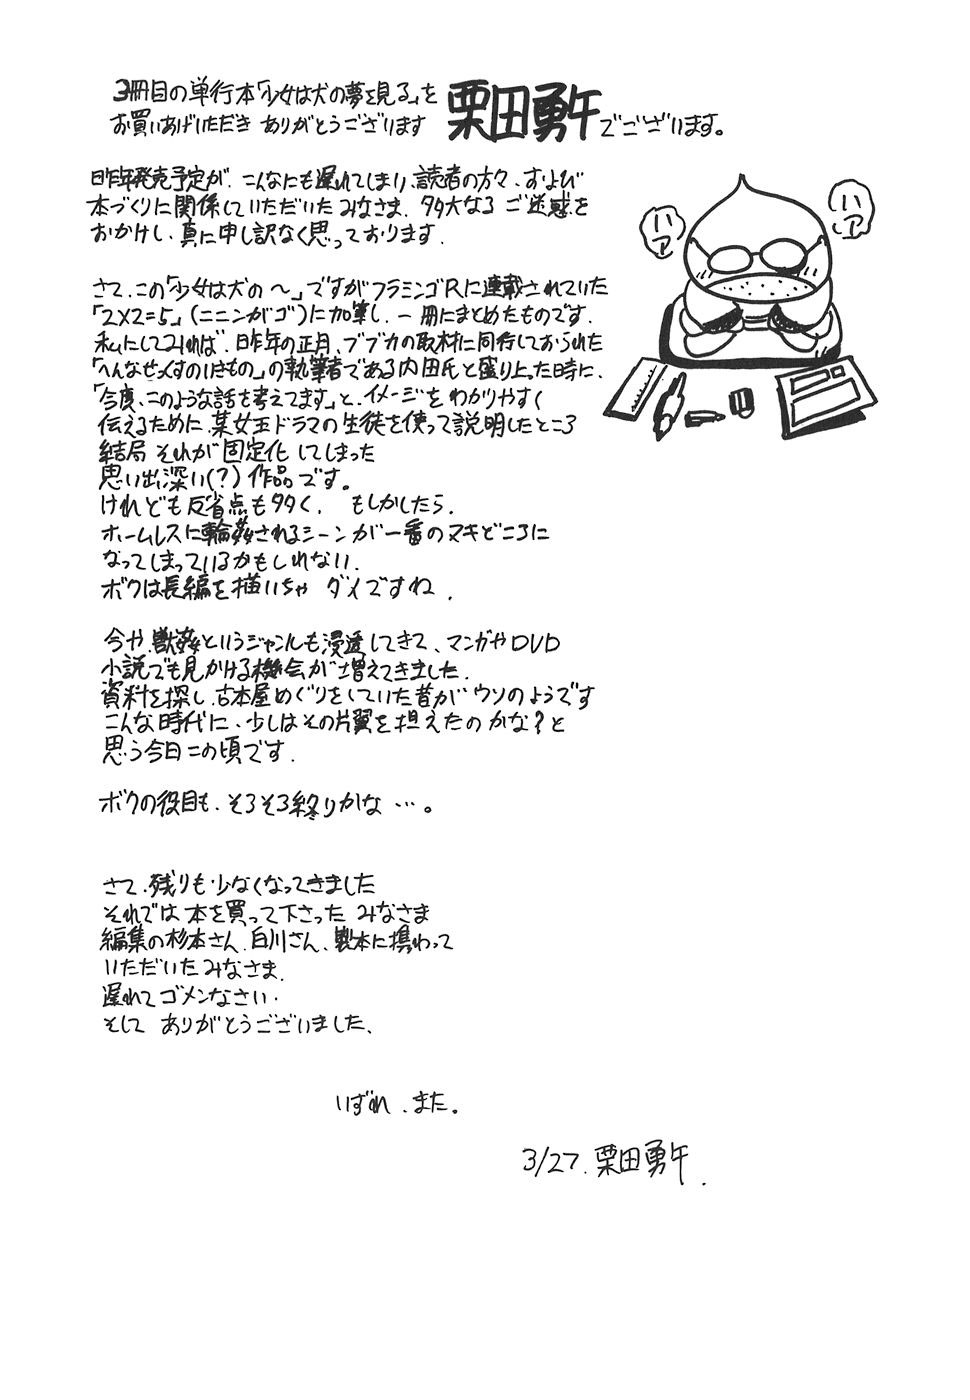 3冊目の単行本「少女は犬の夢を見る」を
お買いあげいただき ありがとうございます 栗田勇午でございます。
ハァ
ハァ
昨年発売予定が、こんなにも遅れてしまい、読者の方々、および
本づくりに関係していただいたみなさま、多大なるご迷惑を
おかけし、真に申し訳なく思っております.
さて、この「少女は犬の〜」ですがフラミンゴRに連載されていた
「2×2=5」(ニニンがゴ)に加筆し、一冊にまとめたものです.
私にしてみれば、昨年の正月、ブブカの取材に同行しておられた
「へんなせっくすのいきもの」の執筆者である内田氏と盛り上った時に、
「今度、このような話を考えてます」と、イメージをわかりやすく
伝えるために、某女王ドラマの生徒を使って説明したところ
結局 それが固定化してしまった
思い出深い(?)作品です。
けれども反省点も多く. もしかしたら、
ホームレスに輪姦されるシーンが一番のヌキどころに
なってしまっているかもしれない.
ボクは長編を描いちゃ ダメですね.
今や、獣姦というジャンルも浸透してきて、マンガやDVD
小説でも見かける機会が増えてきました.
資料を探し、古本屋めぐりをしていた昔がウソのようです
こんな時代に、少しはその片翼を担えたのかな?と
思う今日この頃です.
ボクの役目も、そろそろ終りかな…。
さて、残りも少なくなってきました
それでは 本を買って下さった みなさま
編集の杉本さん、白川さん、製本に携わって
いただいたみなさま.
遅れてゴメンなさい.
そして ありがとうございました、
いずれ、また。
3/27. 栗田勇午.